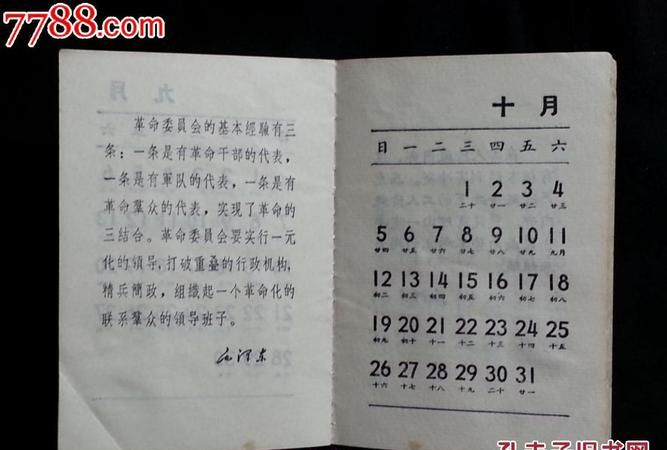 7788.com
九月
革命委員会的基本經驗有三
条：一条是有革命干部的代表，
一条是有軍队的代表，一条是有
革命羣众的代表，实现了革命的
三結合。革命委員会要实行一元
化的領导，打破重叠的行政机构，
精兵簡政，組織起一个革命化的
联系羣众的領导班子。
毛泽东
十月
日 一 二 三 四 五 六
1 2 3 4
二十 廿一 廿二 廿三
5 6 7 8 9 10 11
廿四 廿五 廿六 廿七 廿八 廿九 九月
12 13 14 15 16 17 18
初二 初三 初四 初五 初六 初七 初八
19 20 21 22 23 24 25
初九 初十 十一 十二 十三 十四 十五
26 27 28 29 30 31
十六 十七 十八 十九 二十 廿一
孔夫子旧书网